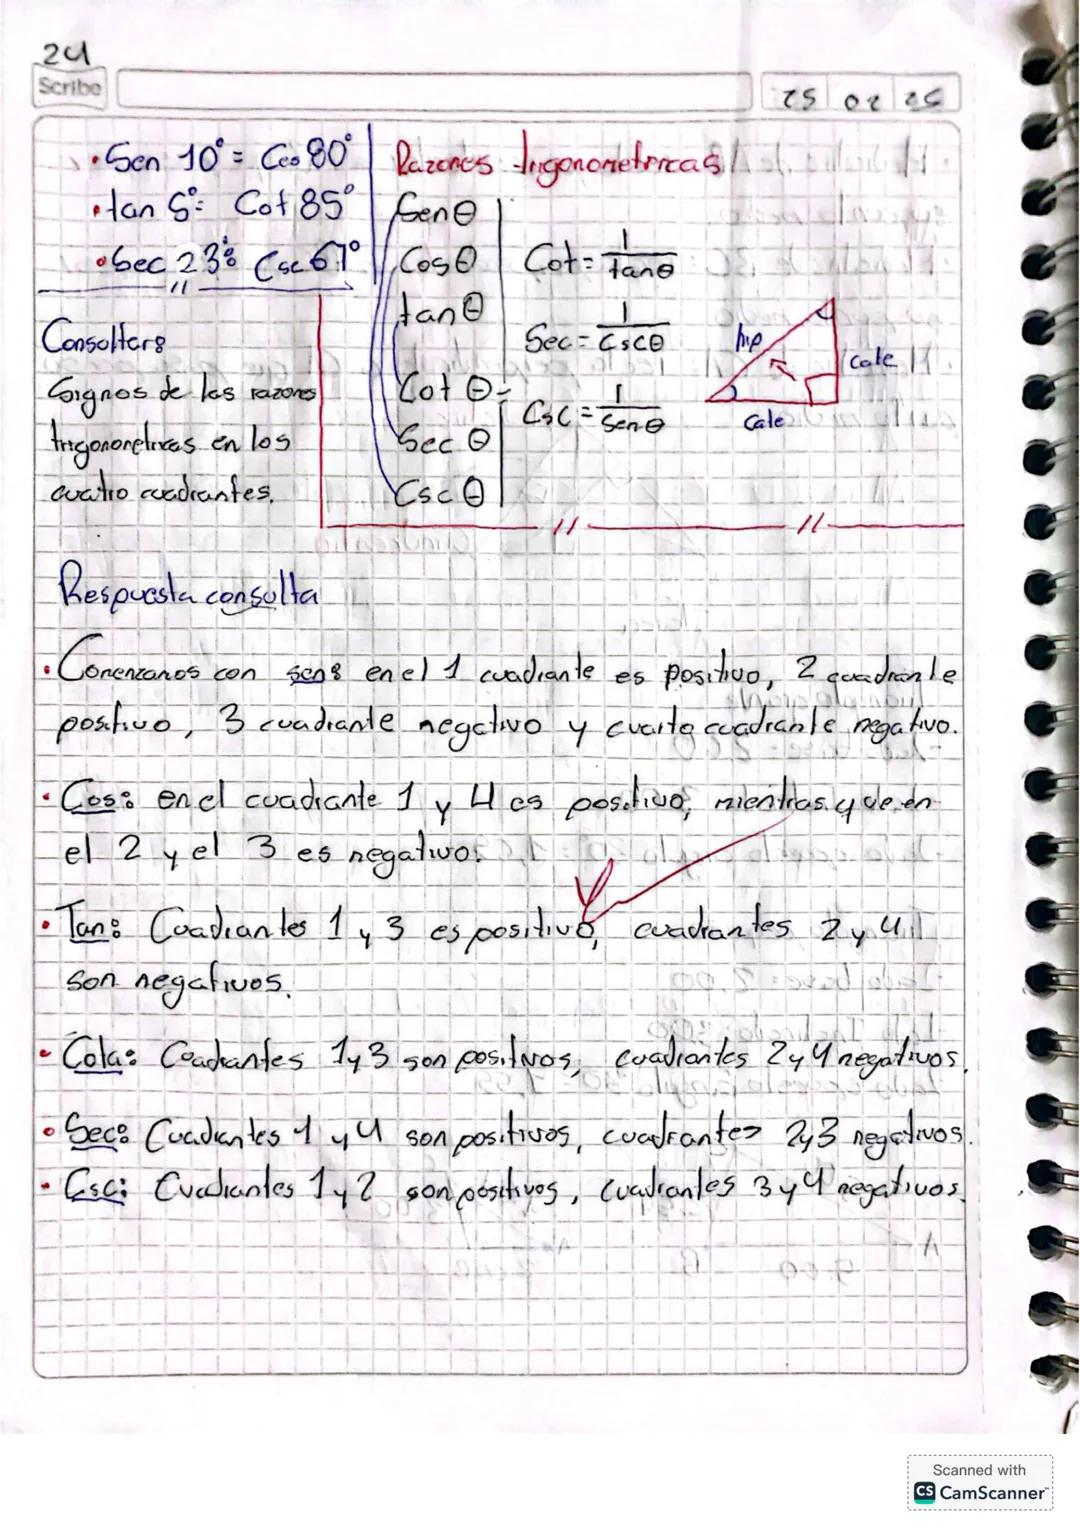 24
Scribe
25 02 25
• Sen 10° = Cos 80°
• tan 5° = Cot 85°
• Sec 23° = Csc 67°
Consultar:
Signos de las razones
trigonometricas en los
cuatro cuadrantes.
Razones trigonometricas
Senθ
Cosθ
tanθ
Cot θ =
Sec θ
Csc θ
Cot = 1/tanθ
Sec = 1/Cscθ
Csc = 1/Senθ
hip
cate
Cate
Respuesta consulta
• Comenzamos con sen: en el 1 cuadrante es positivo, 2 cuadrante
positivo, 3 cuadrante negativo y cuarto cuadrante negativo.
• Cos: en el cuadrante 1 y 4 es positivo, mientras que en
el 2 y el 3 es negativo.
• Tan: Cuadrantes 1 y 3 es positivo, cuadrantes 2 y 4
son negativos.
• Cota: Cuadrantes 1 y 3 son positivos, cuadrantes 2 y 4 negativos.
• Sec: Cuadrantes 1 y 4 son positivos, cuadrantes 2y3 negativos.
• Csc: Cuadrantes 1 y 2 son positivos, cuadrantes 3 y 4 negativos.
Scanned with
CS CamScanner